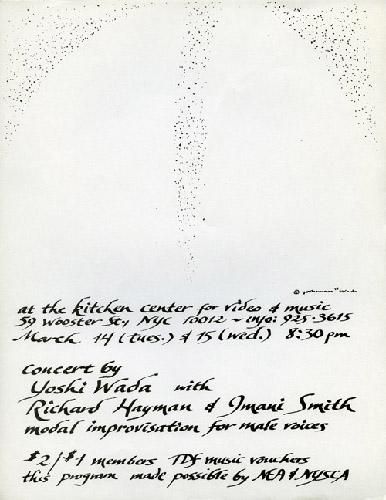 at the kitchen center for video & music
59 Wooster St, NYC 10012 ~ info: 925-3615
March 14 (tues.) & 15 (wed.) 8:30 pm
concert by
Yoshi Wada with
Richard Hayman & Imani Smith
modal improvisation for male voices
$2/$1 members TDF music vouchers
this program made possible by NEA & NYSCA